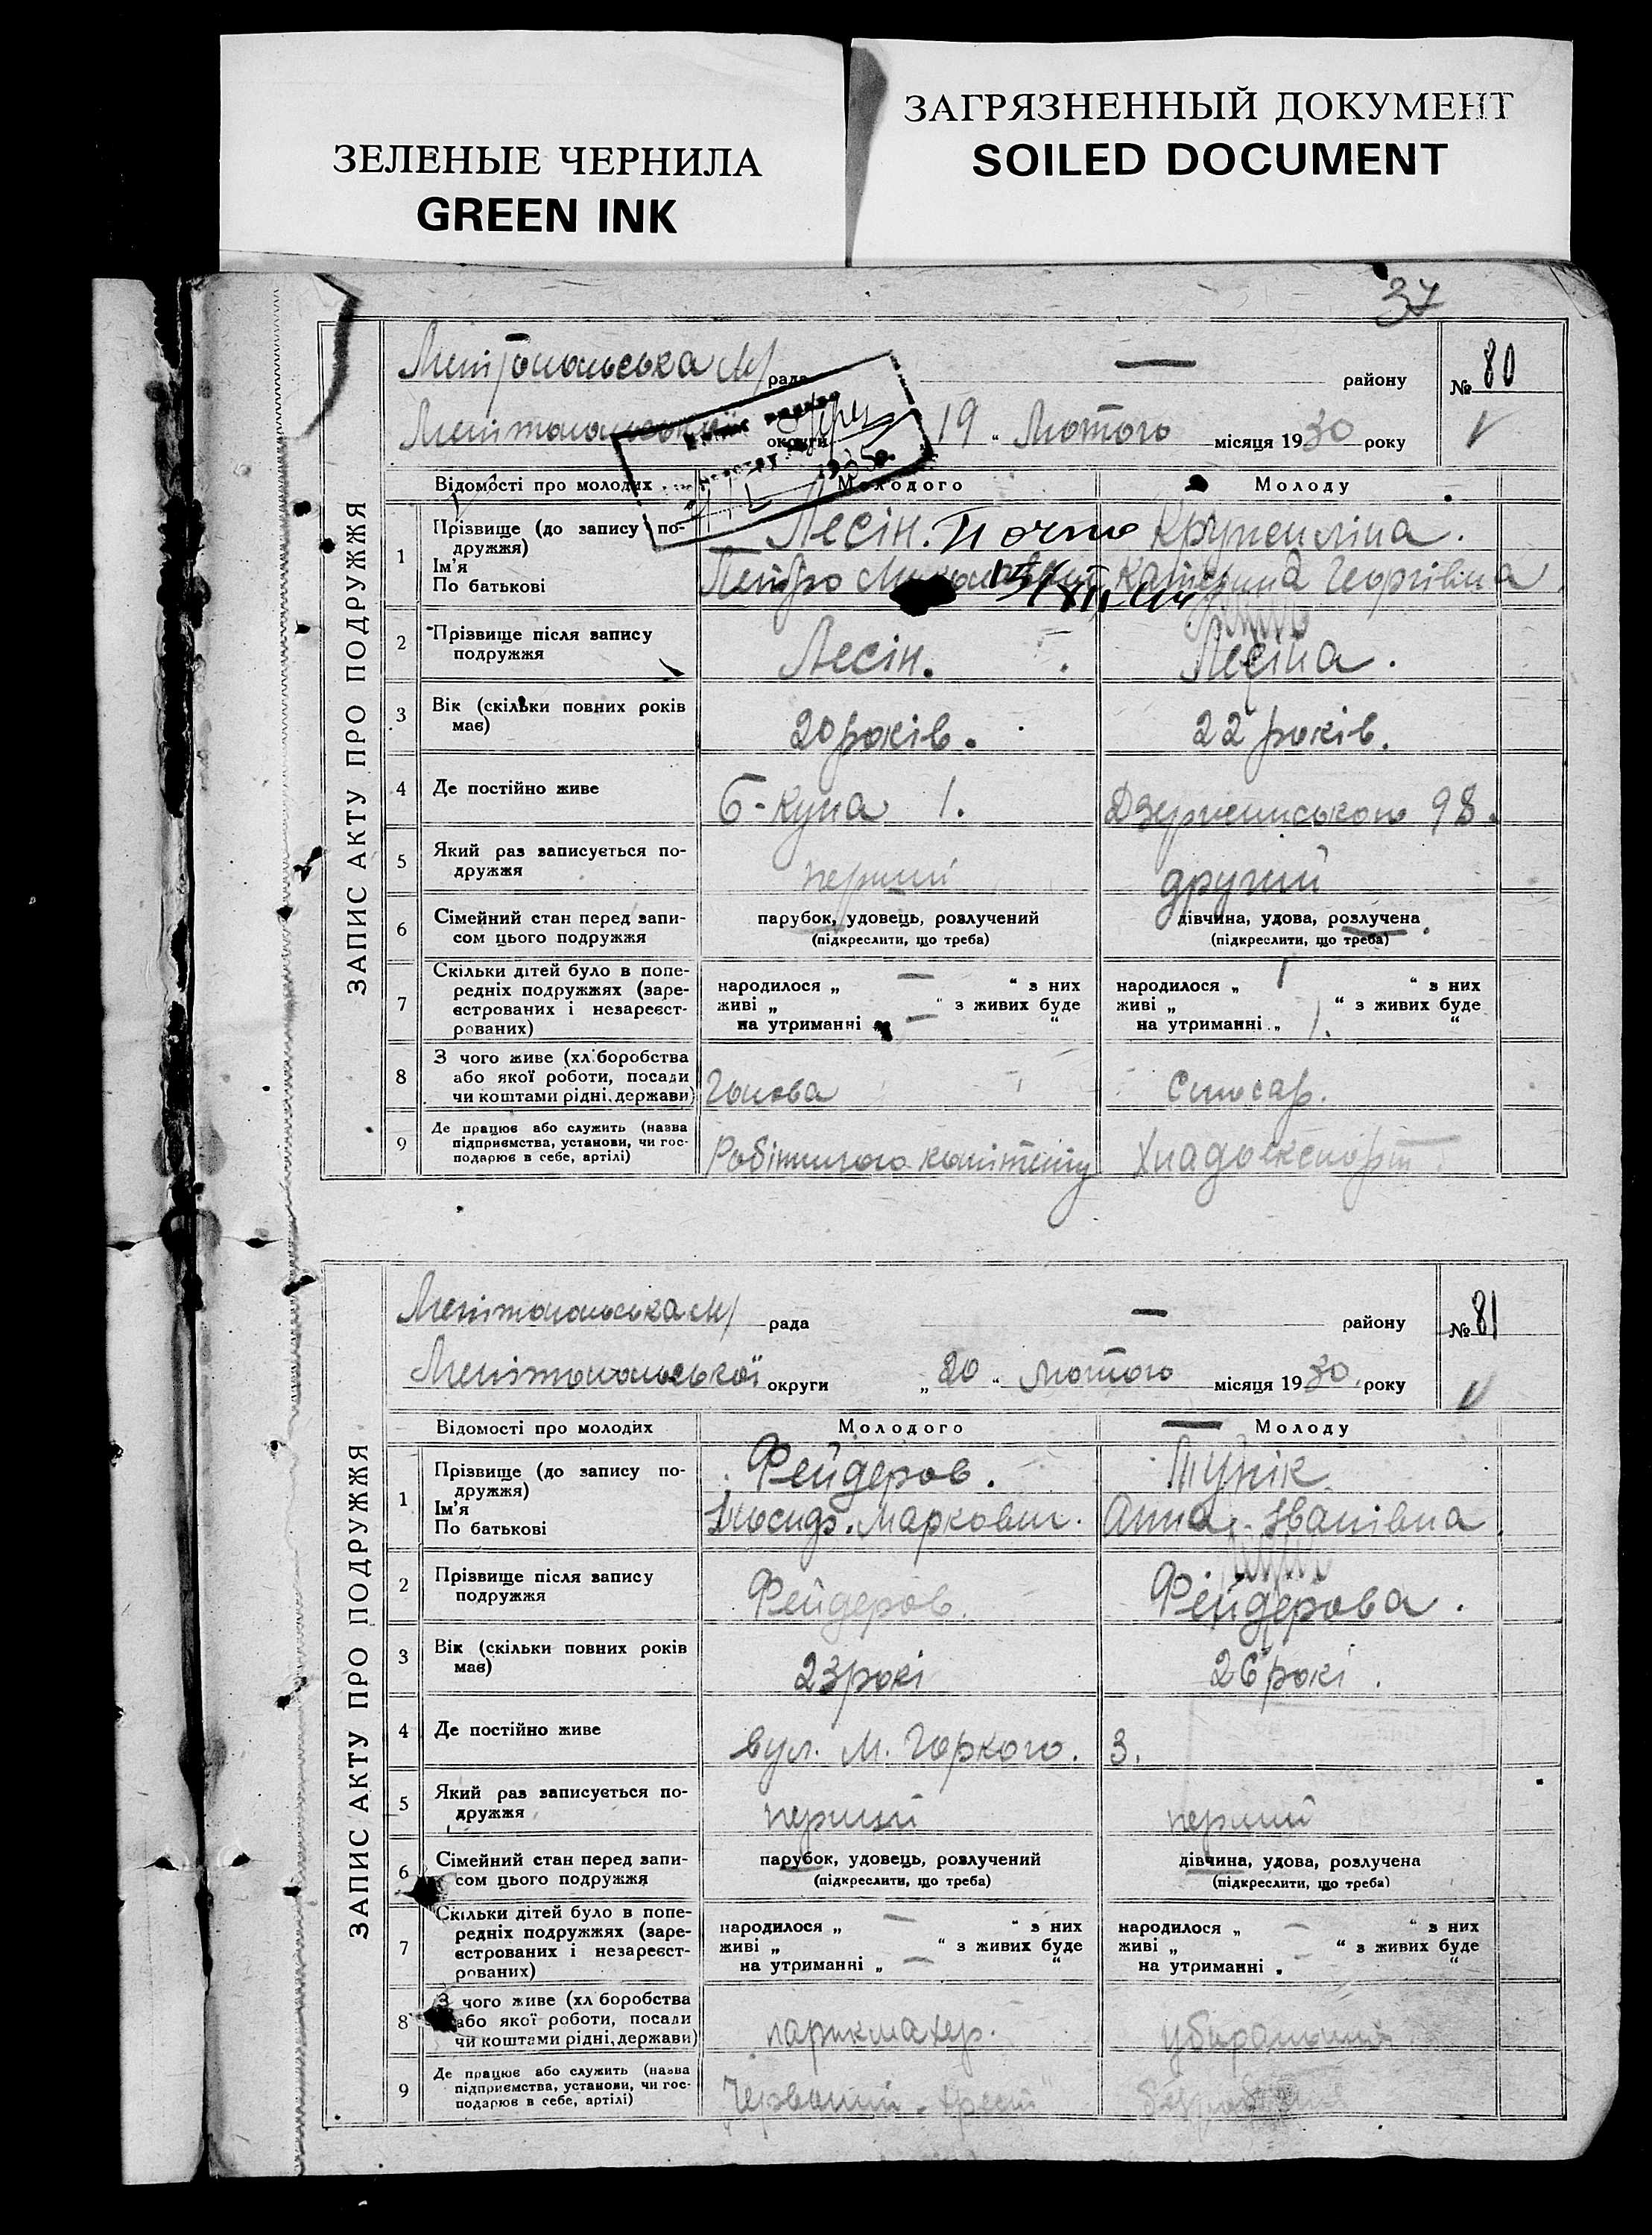 ЗЕЛЕНЫЕ ЧЕРНИЛА
GREEN INK
ЗАГРЯЗНЕННЫЙ ДОКУМЕНТ
SOILED DOCUMENT
37
ЗАПИС АКТУ ПРО ПОДРУЖЖЯ
Мелітопольська м/рада — району № 80
округи 19 “ Лютого місяця 1930 року
Відомості про молодих Молодого Молоду
1 Прізвище (до запису подружжя) Лесін.
Ім'я
По батькові Петро Катерина Георгіївна
2 Прізвище після запису Лесін. Лесіна.
подружжя
3 Вік (скільки повних років 20 років. 22 років.
має)
4 Де постійно живе 1. Дзержинського 98.
5 Який раз записується по- перший другий
дружжя
6 Сімейний стан перед запи- парубок, удовець, розлучений дівчина, удова, розлучена
сом цього подружжя (підкреслити, що треба) (підкреслити, що треба)
7 Скільки дітей було в попе-
редніх подружжях (заре- народилося „ — “ з них народилося „ 1 “ з них
єстрованих і незареєст- живі „ “ з живих буде живі „ “ з живих буде
рованих) на утриманні „ — “ на утриманні „ 1. “
8 З чого живе (хліборобства
або якої роботи, посади
чи коштами рідні, держави) Голова Слюсар.
9 Де працює або служить (назва
підприємства, установи, чи гос-
подарює в себе, артілі) Робітничого комітету
ЗАПИС АКТУ ПРО ПОДРУЖЖЯ
Мелітопольська м/ рада — району № 81
Мелітопольської округи „ 20 “ лютого місяця 1930 року
Відомості про молодих Молодого Молоду
1 Прізвище (до запису по- Фейдеров. Тунік.
дружжя)
Ім'я
По батькові Маркович. Анна Іванівна
2 Прізвище після запису Фейдеров. Фейдерова.
подружжя
3 Вік (скільки повних років 23 рокі 26 рокі.
має)
4 Де постійно живе вул. М. Горкого. 3.
5 Який раз записується по- перший перший
дружжя
6 Сімейний стан перед запи- парубок, удовець, розлучений дівчина, удова, розлучена
сом цього подружжя (підкреслити, що треба) (підкреслити, що треба)
7 Скільки дітей було в попе-
редніх подружжях (заре- народилося „ — “ з них народилося „ — “ з них
єстрованих і незареєст- живі „ “ з живих буде живі „ “ з живих буде
рованих) на утриманні „ — “ на утриманні „ — “
8 З чого живе (хліборобства
або якої роботи, посади
чи коштами рідні, держави) парикмахер.
9 Де працює або служить (назва
підприємства, установи, чи гос-
подарює в себе, артілі) Червоний